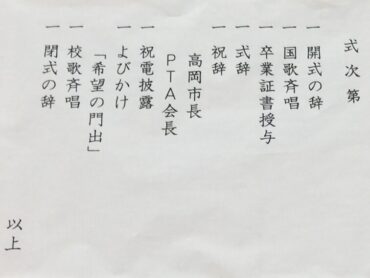 式次第
一 開式の辞
一 国歌斉唱
一 卒業証書授与
一 式辞
一 祝辞
高岡市長
PTA会長
一 祝電披露
一 よびかけ
「希望の門出」
一 校歌斉唱
一 閉式の辞
以上